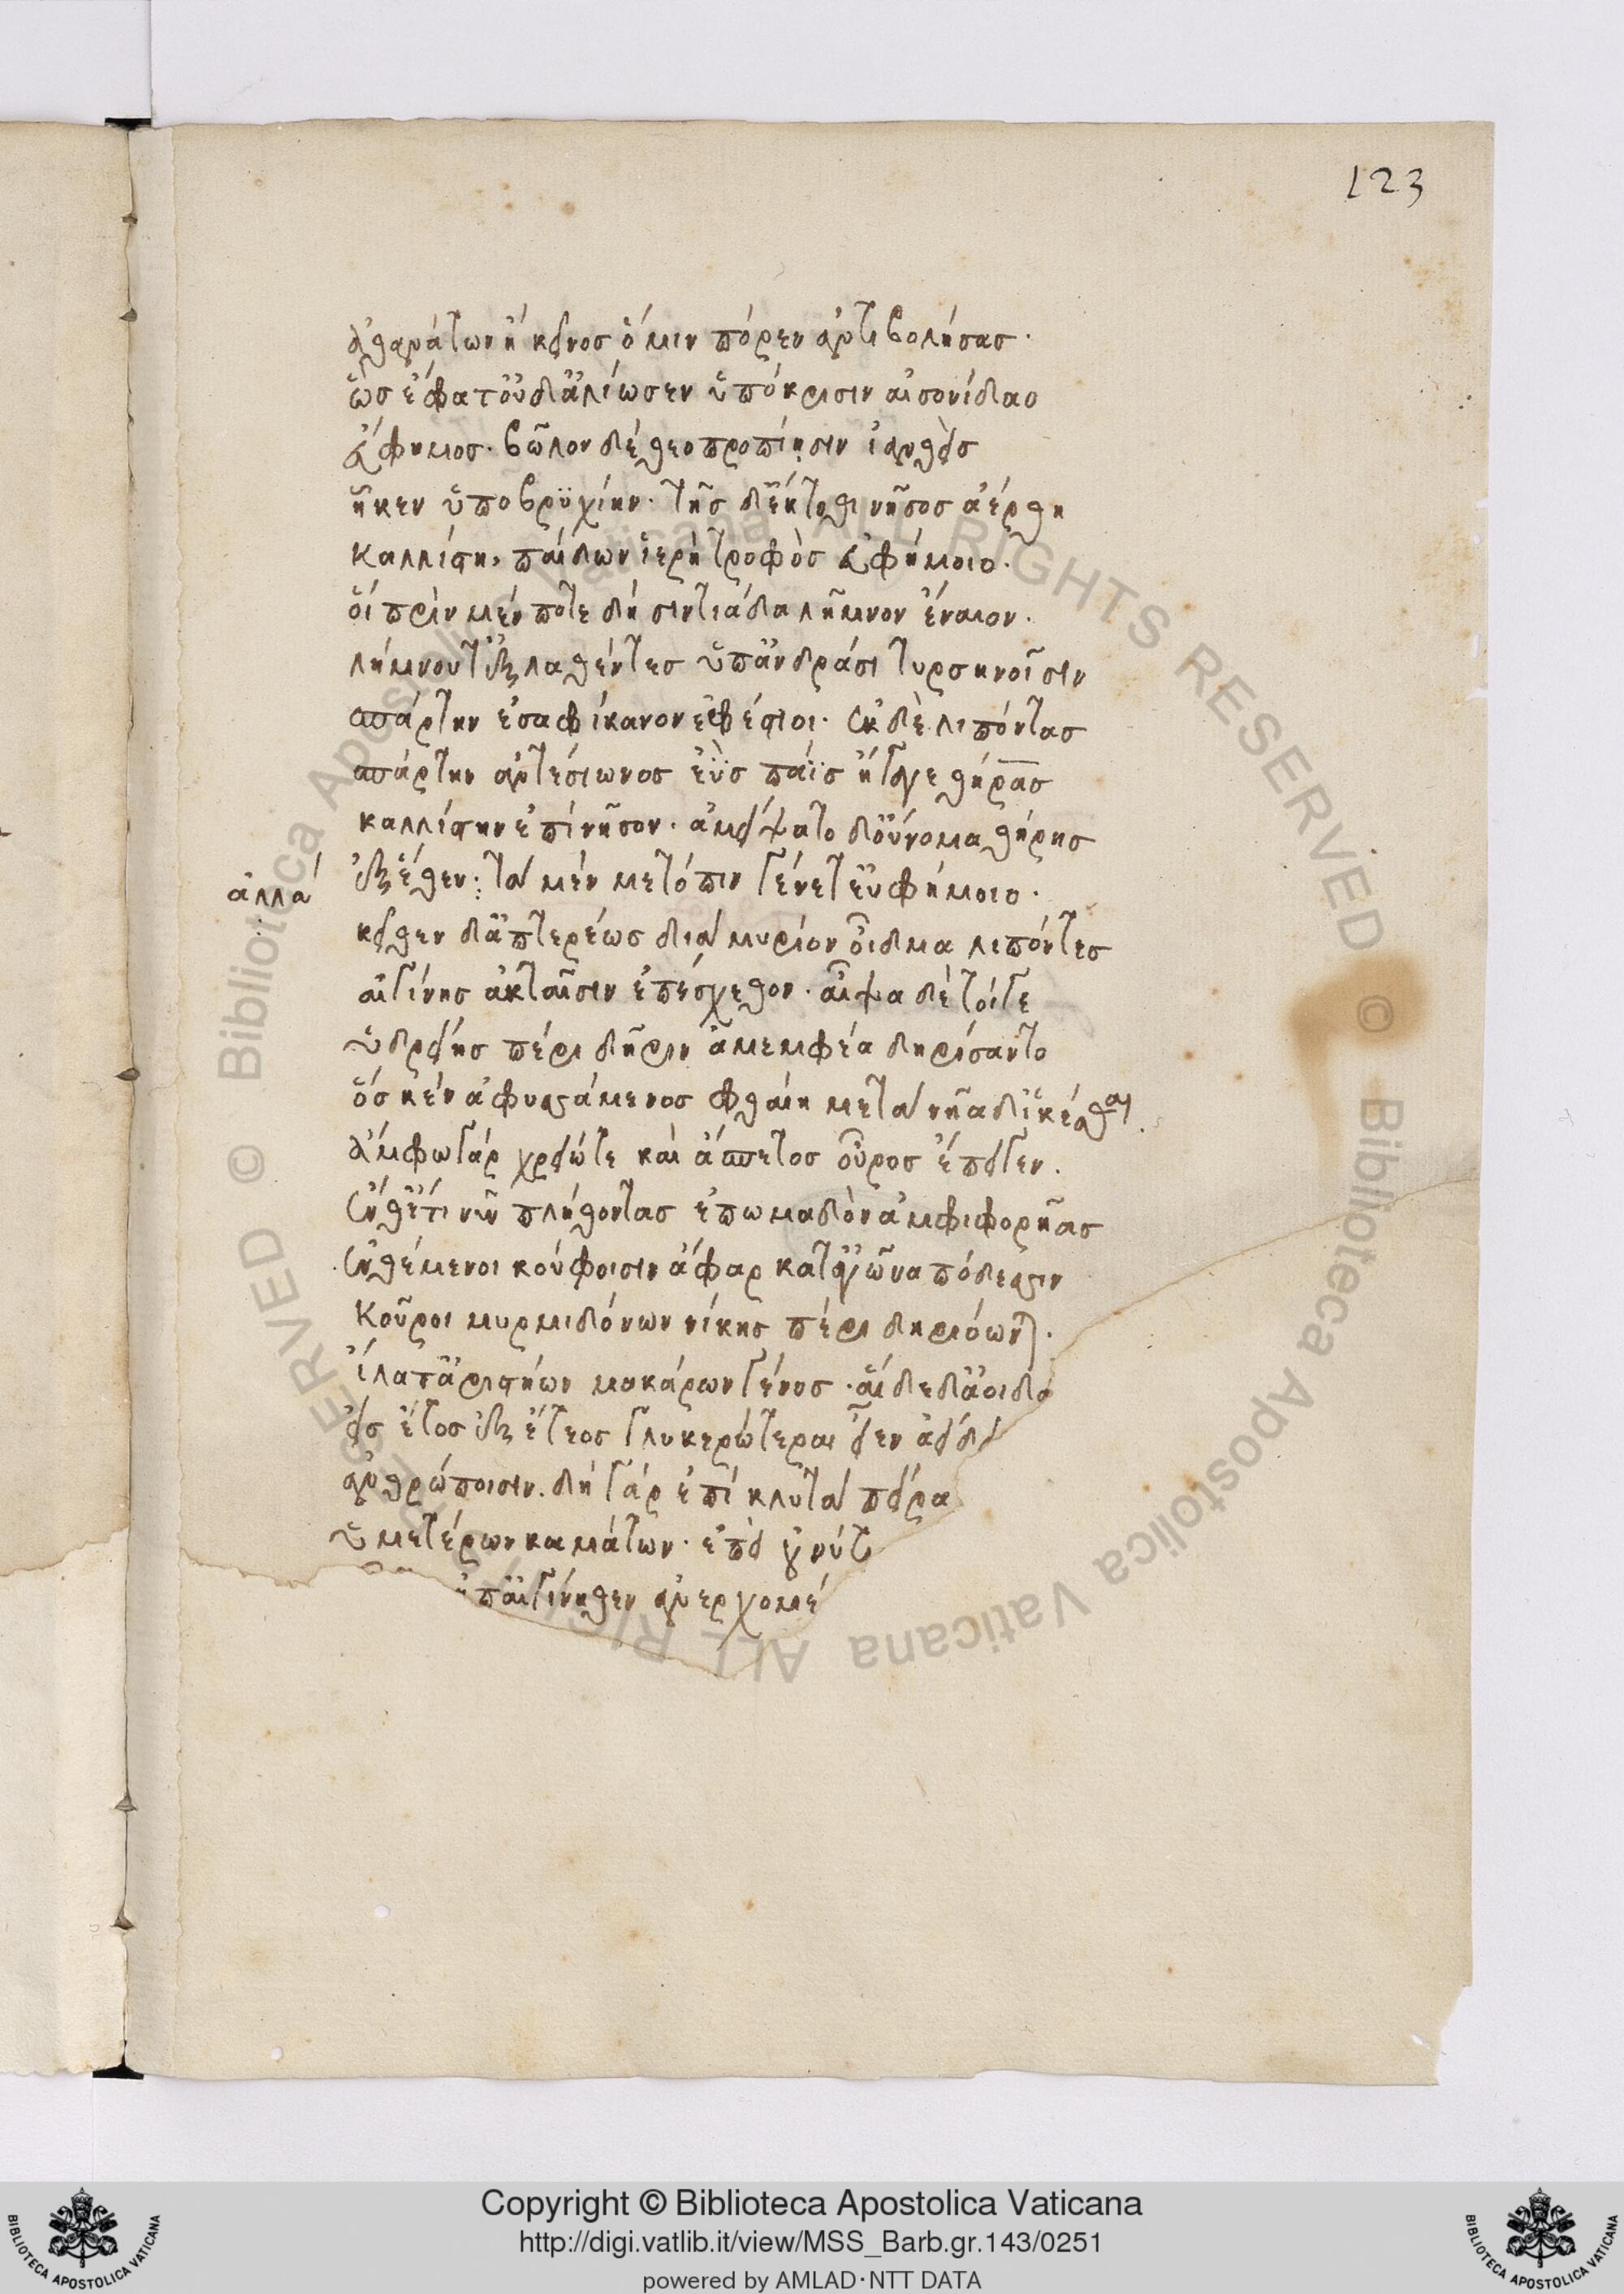 123
ἀθανάτων ἢ κεῖνος ὅ μιν πόρεν ἀντιβολήσας·
ὣς ἔφατ' οὐδ' ἁλίωσεν ὑπόκρισιν αἰσονίδαο
εὔφημος· βῶλον δὲ θεοπροπίῃσιν ἰανθεὶς
ἧκεν ὑποβρυχίην· τῆς δ' ἔκτοθι νῆσος ἀέρθη
καλλίστη, παίδων ἱερὴ τροφὸς εὐφήμοιο·
οἳ πρὶν μέν ποτε δὴ σιντιάδα λῆμνον ἔναιον·
λήμνου τ' ἐξελαθέντες ὑπ' ἀνδράσι τυρσηνοῖσιν
σπάρτην εἰσαφίκανον ἐφέστιοι· ἐκ δὲ λιπόντας
σπάρτην αὐτεσίωνος ἐῢς πάϊς ἤγαγε θήρας
καλλίστην ἐπὶ νῆσον· ἀμείψατο δ' οὔνομα θήρης
ἀλλὰ
ἐξ ἕθεν· τὰ μὲν μετόπιν γένετ' εὐφήμοιο·
κεῖθεν δ' ἀπτερέως διὰ μυρίον οἶδμα λιπόντες
αἰγίνης ἀκταῖσιν ἐπέσχεθον· αἶψα δὲ τοίγε
ὑδρείης πέρι δῆριν ἀμεμφέα δηρίσαντο
ὅς κεν ἀφυσσάμενος φθαίη μετὰ νῆα δ' ἱκέσθαι.
ἄμφω γὰρ χρειώ τε καὶ ἄσπετος οὖρος ἔπειγεν.
ἔνθ' ἔτι νῦν πλήθοντας ἐπωμαδὸν ἀμφιφορῆας
ἀνθέμενοι κούφοισιν ἄφαρ κατ' ἀγῶνα πόδεσσιν
κοῦροι μυρμιδόνων νίκης πέρι δηριόωνται.
ἵλατ' ἀριστήων μακάρων γένος· αἵδε δ' ἀοιδα
εἰς ἔτος ἐξ ἔτεος γλυκερώτεραι εἶεν ἀείδει
ἀνθρώποισιν. δὴ γὰρ ἐπὶ κλυτὰ πείρα
ὑμετέρων καμάτων· ἐπεὶ
ἀπ' αἰγίνηθεν ἀνερχομέ
Copyright © Biblioteca Apostolica Vaticana
http://digi.vatlib.it/view/MSS_Barb.gr.143/0251
powered by AMLAD·NTT DATA